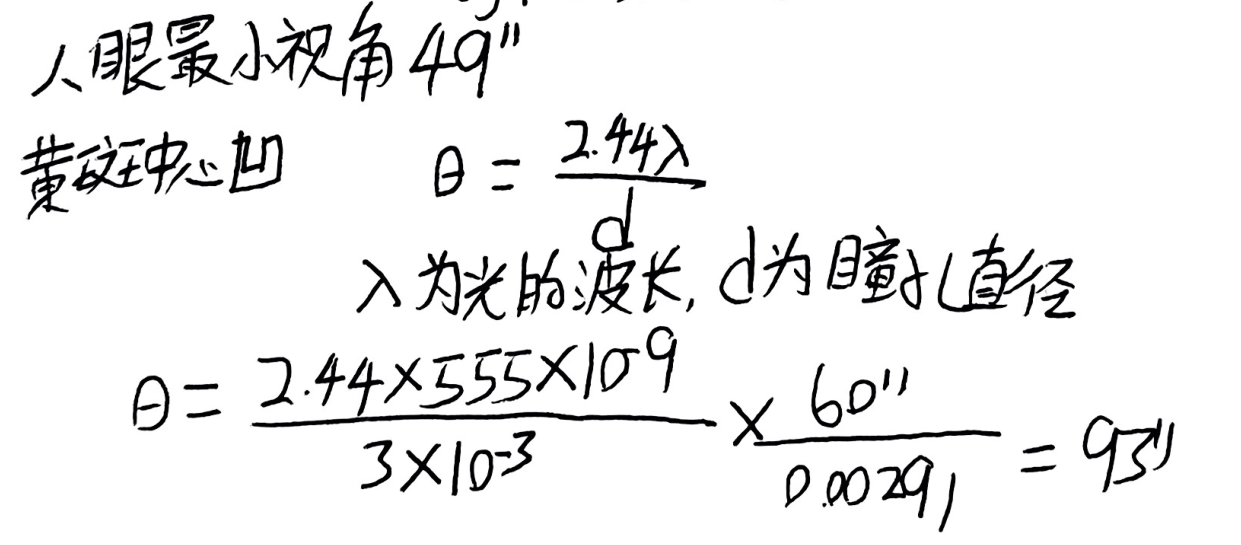 人眼最小视角 49"
黄斑中心凹 θ = 2.44λ / d
λ 为光的波长, d为瞳孔直径
θ = 2.44×555×10-9 / 3×10-3 × 60" / 0.00291 = 93"